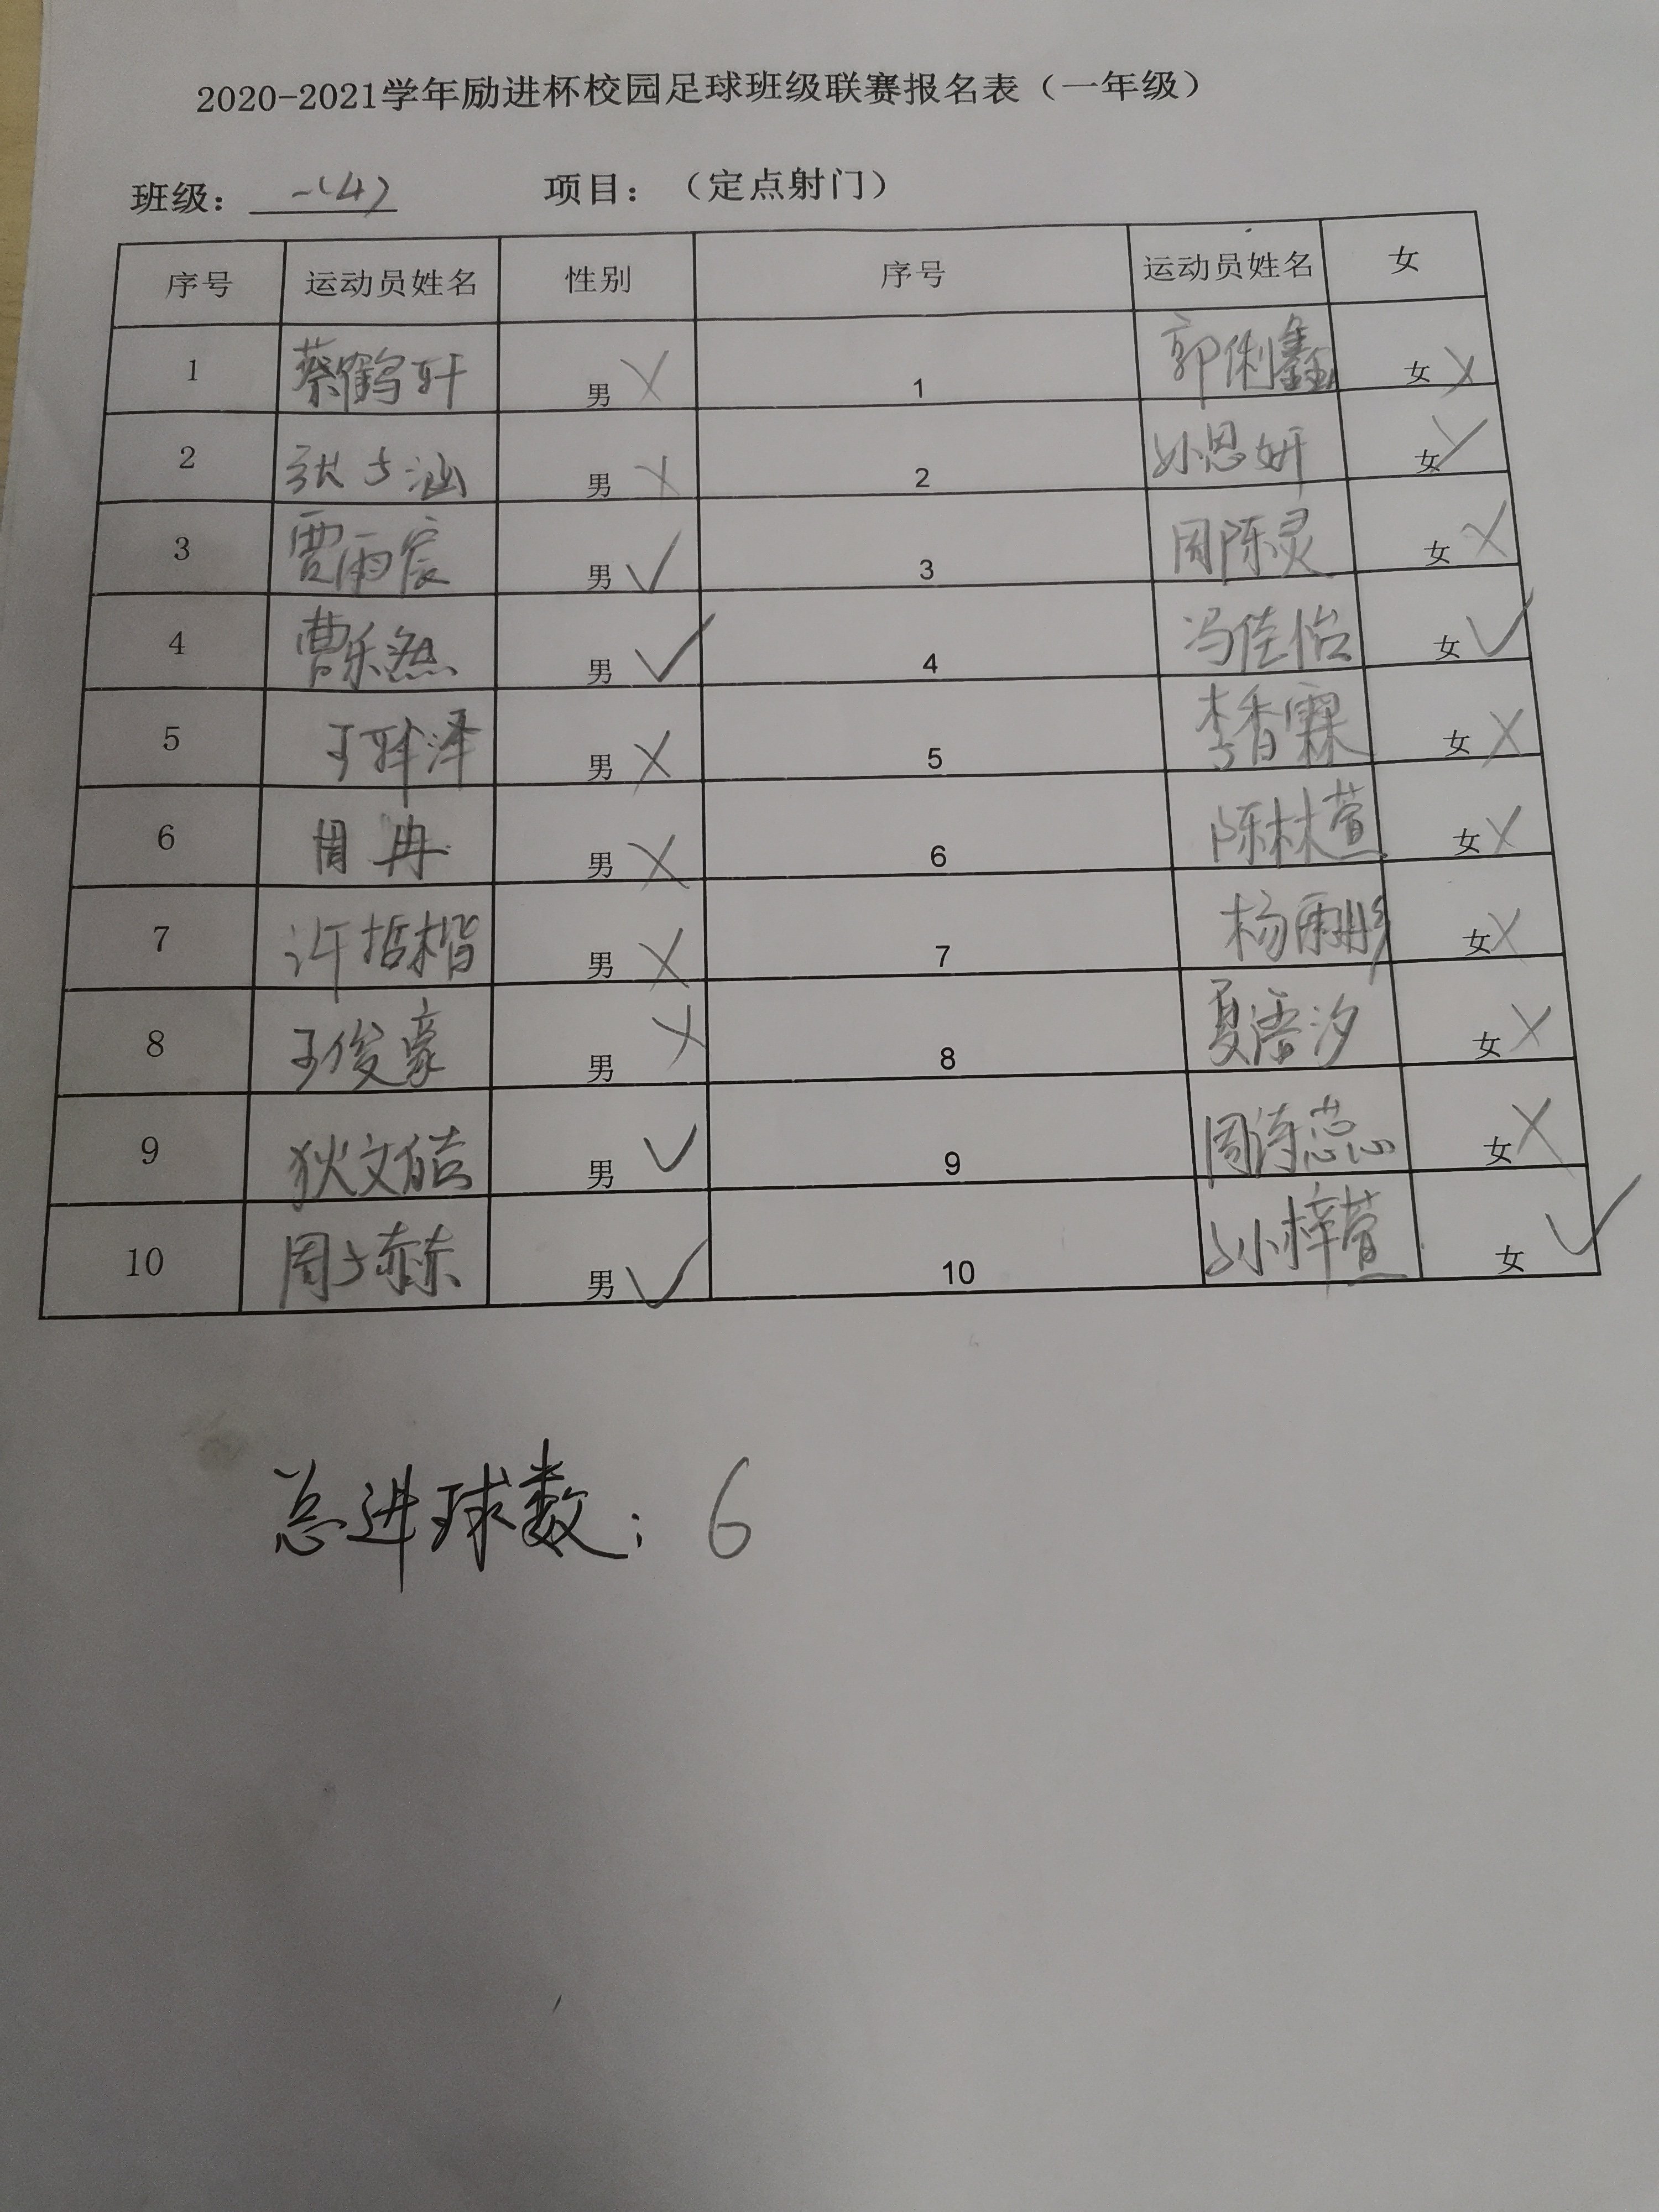 2020-2021学年励进杯校园足球班级联赛报名表（一年级）
班级： 一(4) 项目：（定点射门）
序号 运动员姓名 性别 序号 运动员姓名 女
1 蔡鹤轩 男 X 1 郭俐鑫 女 X
2 张子涵 男 X 2 孙思妍 女 X
3 贾雨宸 男 ✓ 3 周陈灵 女 X
4 曹乐然 男 ✓ 4 冯佳怡 女 ✓
5 王梓泽 男 X 5 李香霖 女 X
6 周冉 男 X 6 陈林萱 女 X
7 许哲楷 男 X 7 杨雨彤 女 X
8 王俊豪 男 X 8 夏语汐 女 X
9 狄文皓 男 ✓ 9 周诗蕊 女 X
10 周子 男 ✓ 10 孙梓萱 女 ✓
总进球数：6